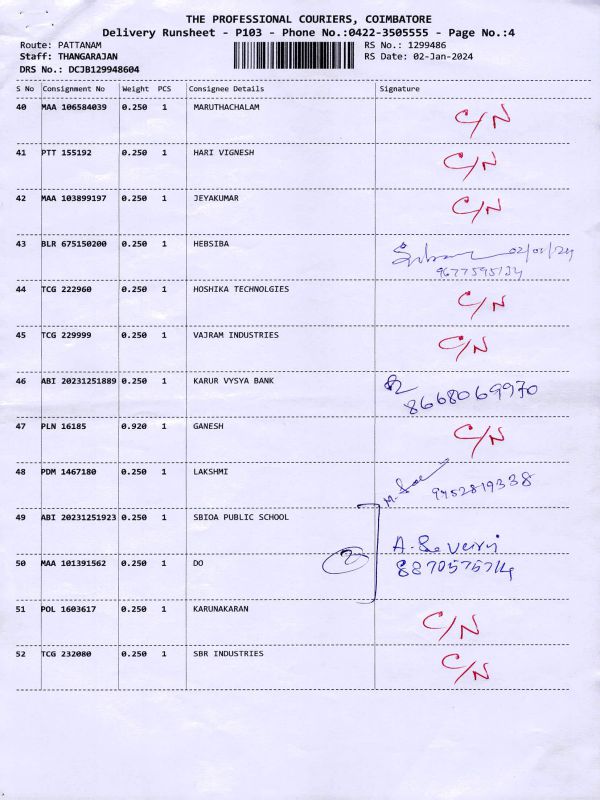 THE PROFESSIONAL COURIERS, COIMBATORE
Delivery Runsheet - P103 - Phone No.:0422-3505555 - Page No.:4
Route: PATTANAM RS No.: 1299486
Staff: THANGARAJAN RS Date: 02-Jan-2024
DRS No.: DCJB129948604
S No Consignment No Weight PCS Consignee Details Signature
40 MAA 106584039 0.250 1 MARUTHACHALAM C/N
41 PTT 155192 0.250 1 HARI VIGNESH C/N
42 MAA 103899197 0.250 1 JEYAKUMAR C/N
43 BLR 675150200 0.250 1 HEBSIBA 02/01/24
44 TCG 222960 0.250 1 HOSHIKA TECHNOLGIES C/N
45 TCG 229999 0.250 1 VAJRAM INDUSTRIES C/N
46 ABI 20231251889 0.250 1 KARUR VYSYA BANK
8668069970
47 PLN 16185 0.920 1 GANESH C/N
48 PDM 1467180 0.250 1 LAKSHMI 9952819338
49 ABI 20231251923 0.250 1 SBIOA PUBLIC SCHOOL
50 MAA 101391562 0.250 1 DO 2
51 POL 1603617 0.250 1 KARUNAKARAN C/N
52 TCG 232080 0.250 1 SBR INDUSTRIES C/N